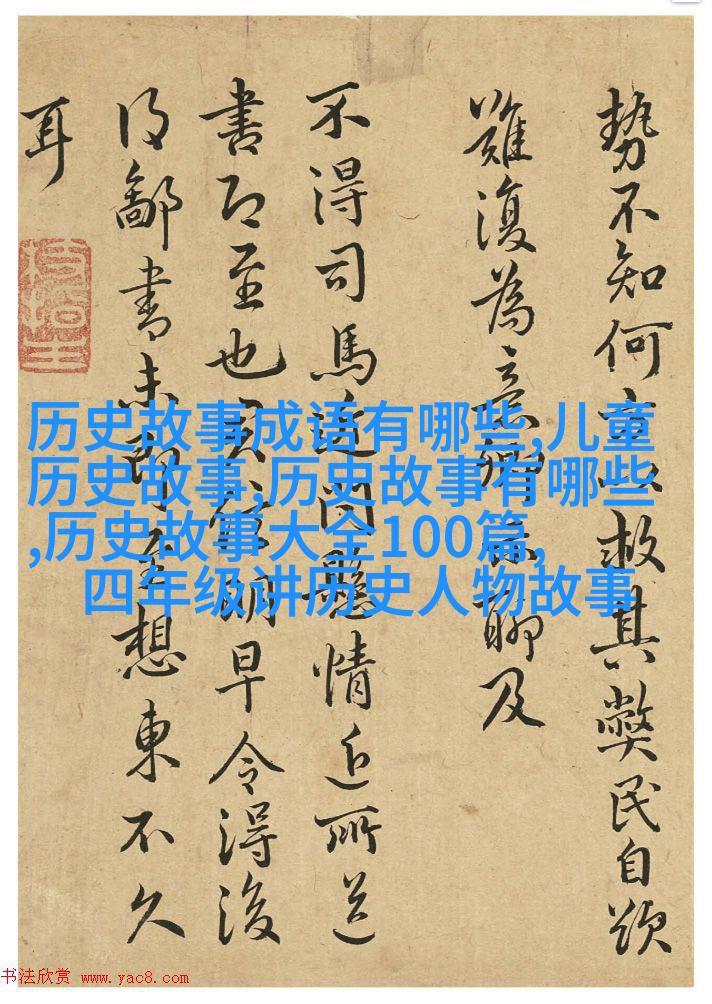 勢不知何方以救其弊民自欲
難復為意卿示聊及
不得司馬近問懸情近所送
書即至也早令得後
得鄙書未即至想東不久
耳
历史故事成语有哪些,儿童
历史故事,历史故事有哪些
,历史故事大全100篇,
四年级讲历史人物故事
书法欣赏 www.yac8.com